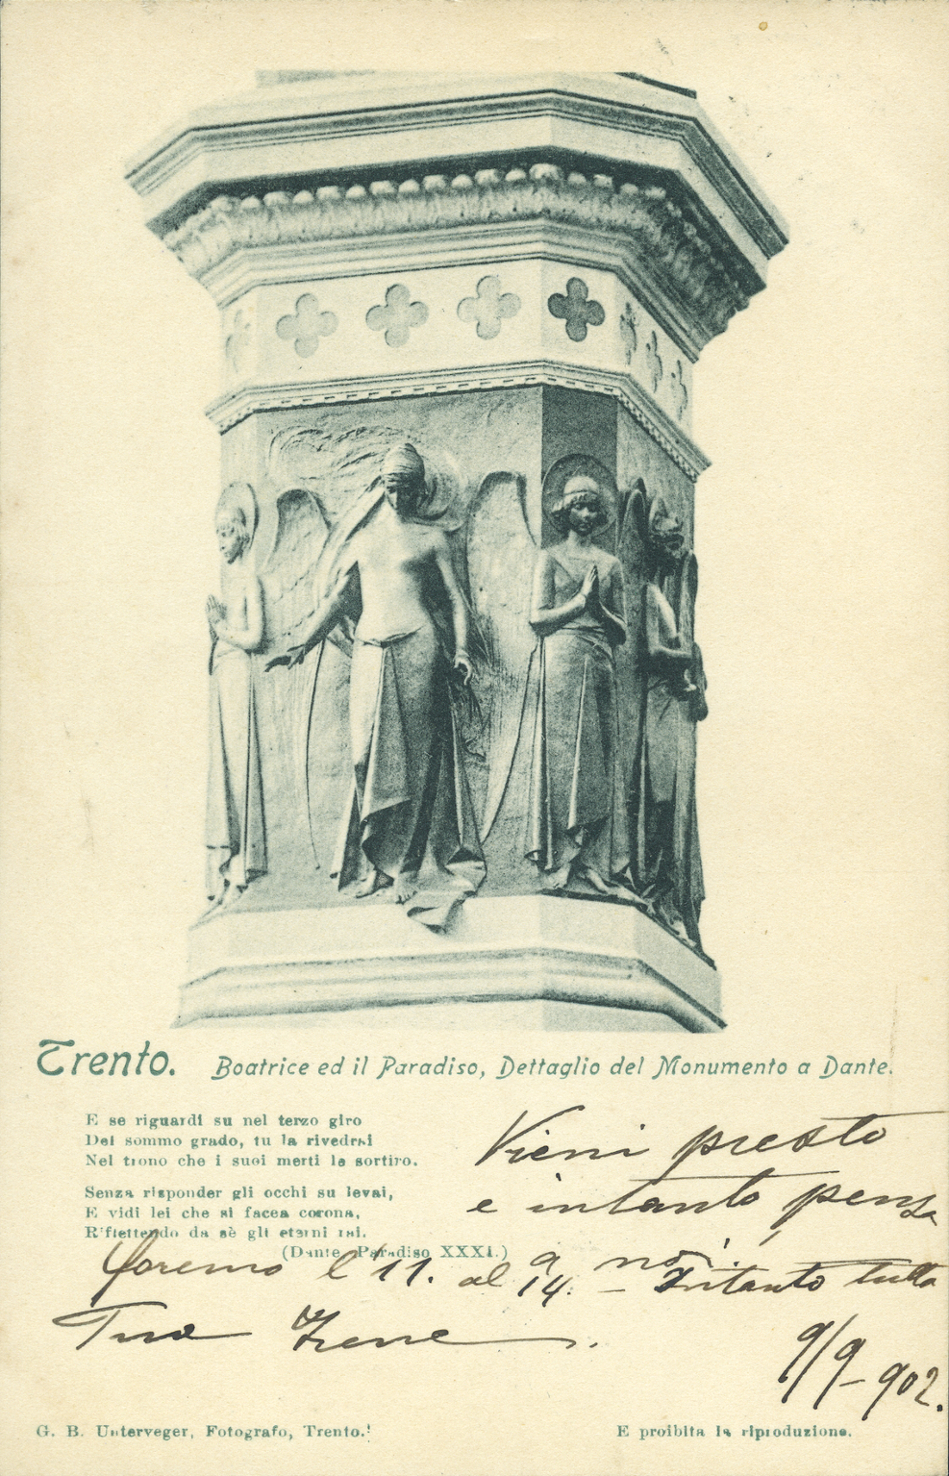 Trento. Beatrice ed il Paradiso, Dettaglio del Monumento a Dante.
E se riguardi su nel terzo giro
Del sommo grado, tu la rivedrai
Nel trono che i suoi merti le sortiro.
Senza risponder gli occhi su levai,
E vidi lei che si facea corona,
Riflettendo da sè gli eterni rai.
(Dante, Paradiso XXXI.)
Vieni presto
e intanto pensa
a noi.
l'11. al 14. – Intanto tutta
Tua Irene.
9/9-902.
G. B. Unterveger, Fotografo, Trento.
E proibita la riproduzione.